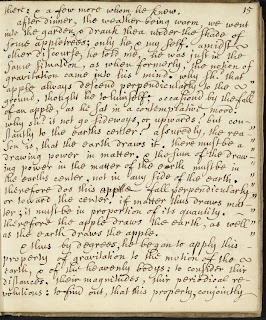 there; & a few more whom he knew. 15
after dinner, the weather being warm, we went
into the garden, & drank thea under the shade of
some appletrees; only he, & my self. amidst
other discourse, he told me, he was just in the
same situation, as when formerly, the notion of
gravitation came into his mind. why shd that
apple always descend perpendicularly to the
ground, thought he to himself; occasion'd by the fall
of an apple, as he sat in a contemplative mood.
why shd it not go sideways, or upwards? but con-
stantly to the earths center? assuredly, the rea-
son is, that the earth draws it. there must be a
drawing power in matter. & the sum of the draw-
ing power in the matter of the earth must be in
the earths center, not in any side of the earth.
therefore dos this apple fall perpendicularly,
or toward the center. if matter thus draws mat-
ter; it must be in proportion of its quantity.
therefore the apple draws the earth, as well
as the earth draws the apple.
& thus by degrees, he began to apply this
property of gravitation to the motion of the
earth, & of the heavenly bodys: to consider thir
distances, their magnitudes, thir periodical re-
volutions: to find out, that this property, conjointly